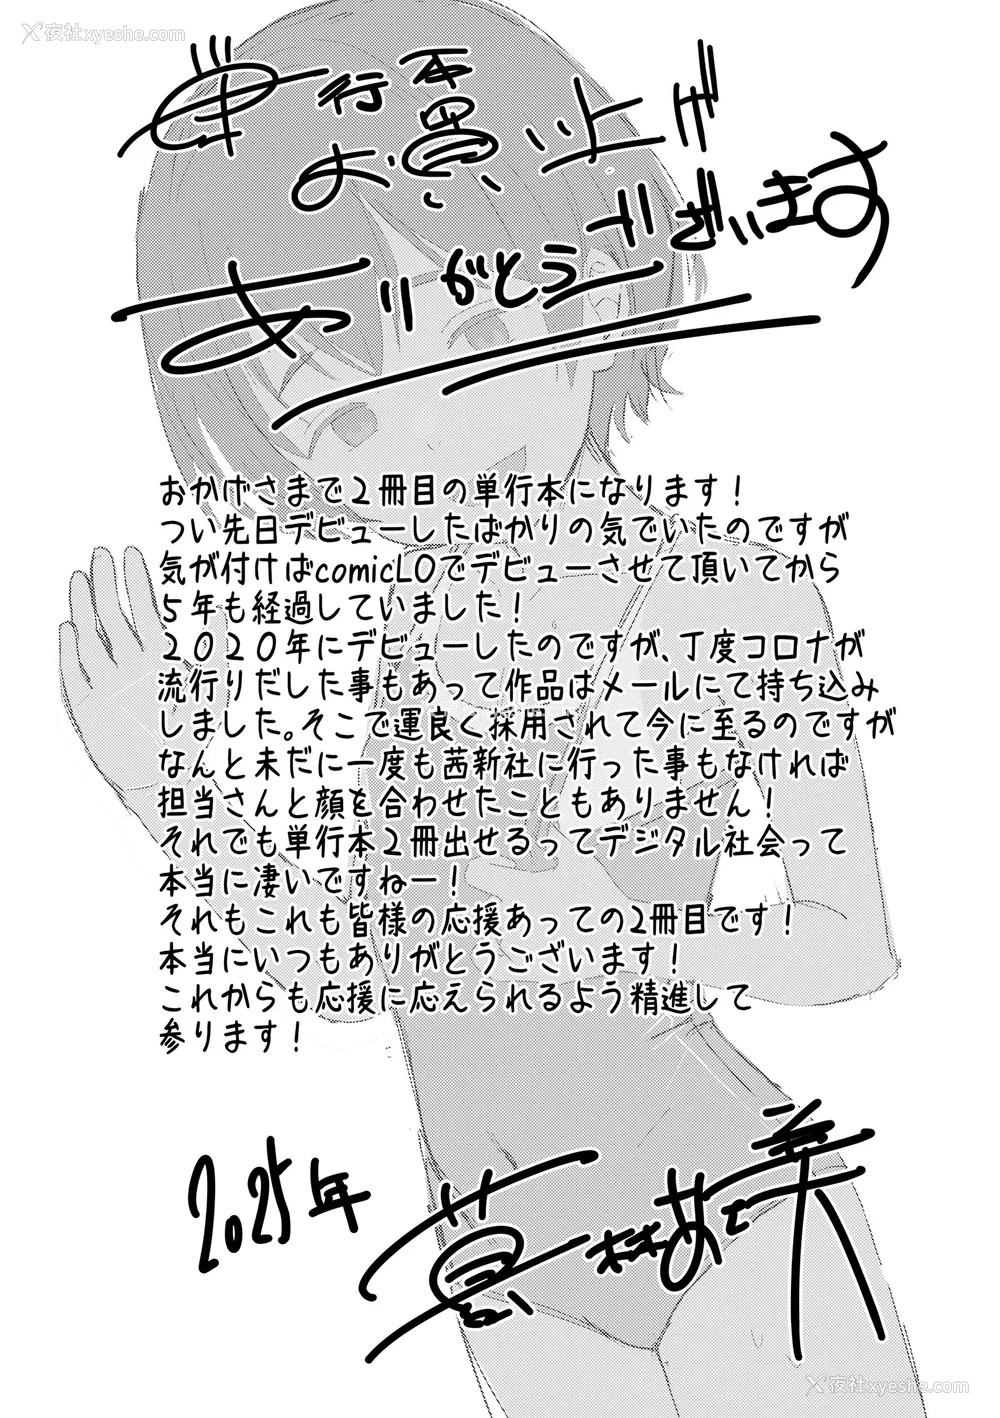 夜社xyeshe.com
単行本
お買い上げ
ございます
ありがとう
おかげさまで２冊目の単行本になります！
つい先日デビューしたばかりの気でいたのですが
気が付けばcomicLOでデビューさせて頂いてから
５年も経過していました！
２０２０年にデビューしたのですが、丁度コロナが
流行りだした事もあって作品はメールにて持ち込み
しました。そこで運良く採用されて今に至るのですが
なんと未だに一度も茜新社に行った事もなければ
担当さんと顔を合わせたこともありません！
それでも単行本２冊出せるってデジタル社会って
本当に凄いですねー！
それもこれも皆様の応援あっての2冊目です！
本当にいつもありがとうございます！
これからも応援に応えられるよう精進して
参ります！
2025年
夜社xyeshe.com